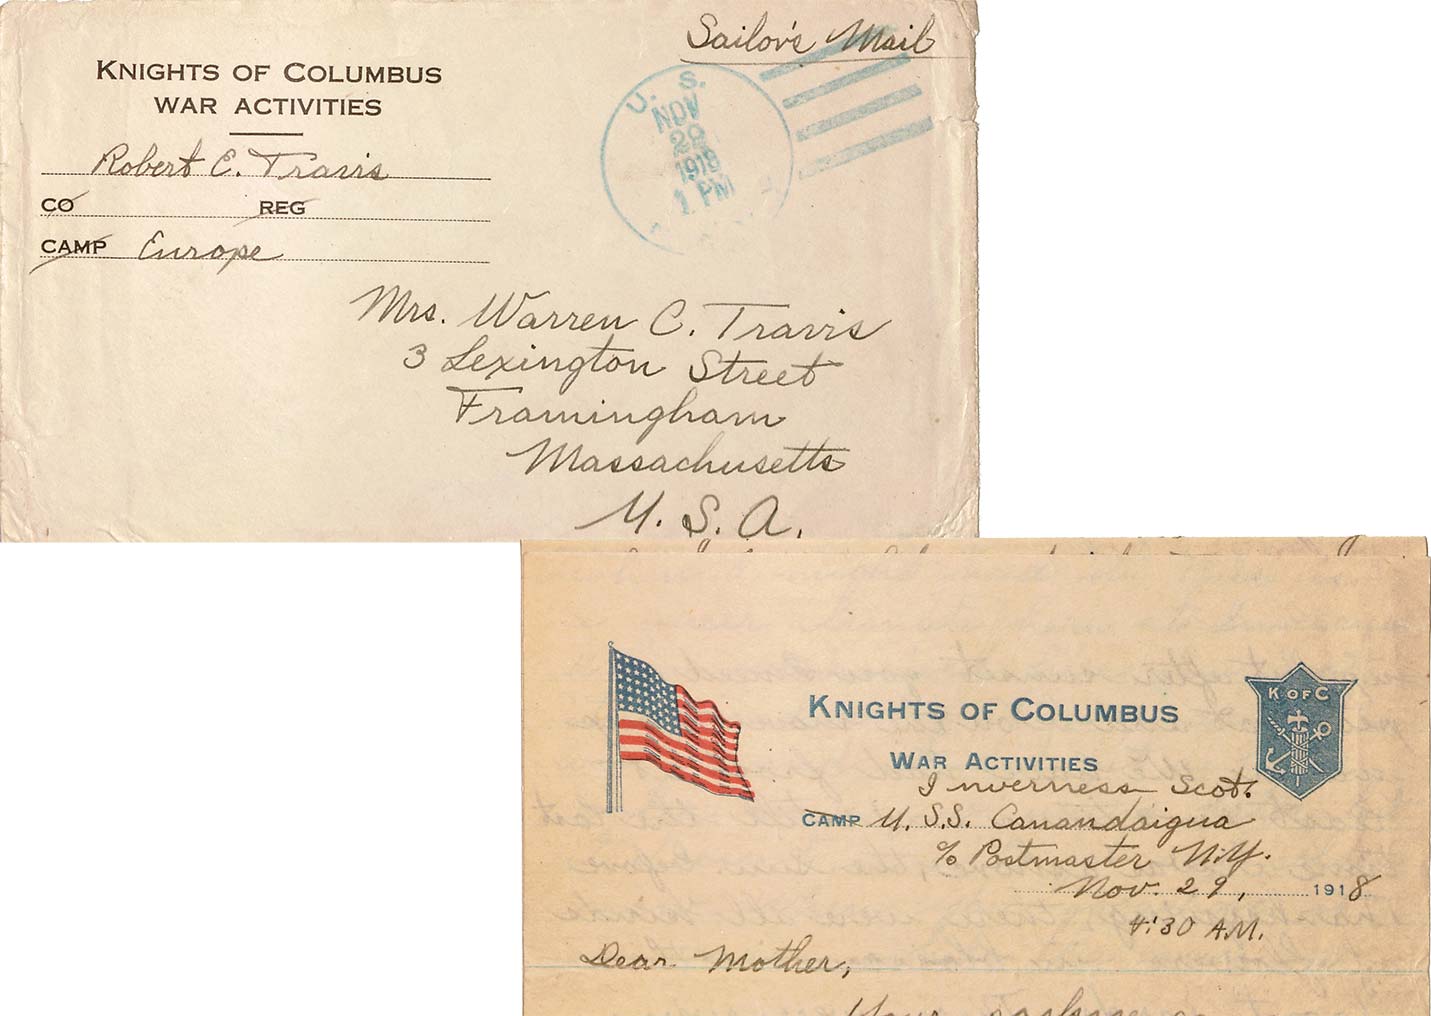 Sailor's Mail
KNIGHTS OF COLUMBUS
WAR ACTIVITIES
U. S.
NOV
29
1918
1 PM
Robert E. Travis
CO REG
CAMP Europe
Mrs. Warren C. Travis
3 Lexington Street
Framingham
Massachusetts
U. S. A.
K OF C
KNIGHTS OF COLUMBUS
WAR ACTIVITIES
Inverness Scot.
CAMP U. S.S. Canandaigua
c/o Postmaster N.Y.
Nov. 29, 1918
4:30 A.M.
Dear Mother,
Your